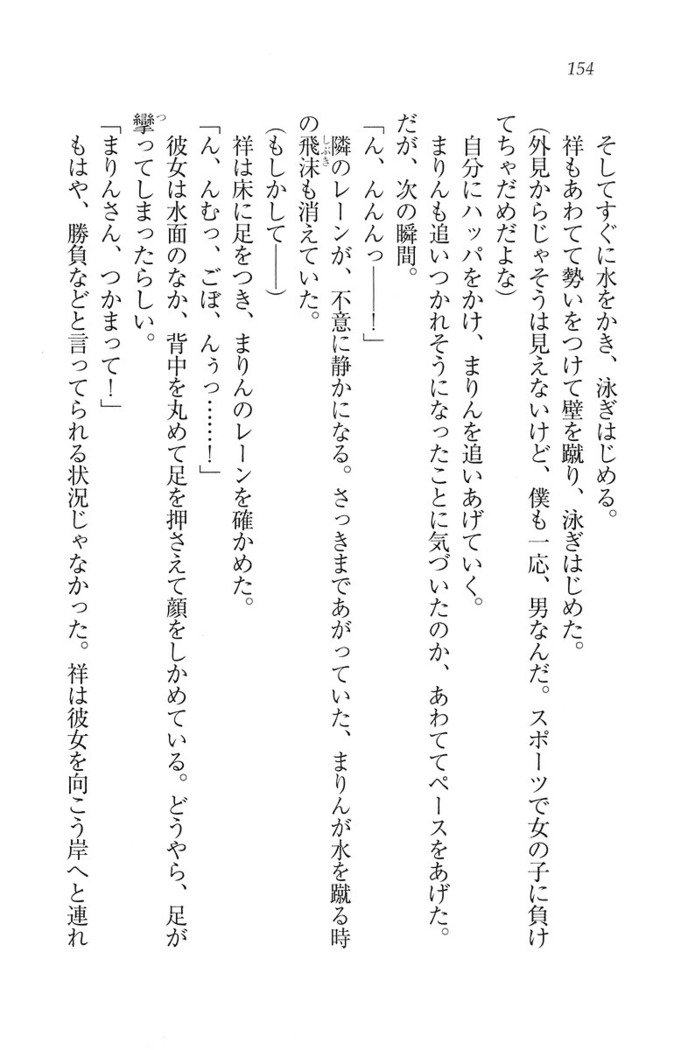 154
そしてすぐに水をかき、泳ぎはじめる。
祥もあわてて勢いをつけて壁を蹴り、泳ぎはじめた。
(外見からじゃそうは見えないけど、僕も一応、男なんだ。スポーツで女の子に負け
てちゃだめだよな)
自分にハッパをかけ、まりんを追いあげていく。
まりんも追いつかれそうになったことに気づいたのか、あわててペースをあげた。
だが、次の瞬間。
「ん、んんんっ――!」
隣のレーンが、不意に静かになる。さっきまであがっていた、まりんが水を蹴る時
の飛沫も消えていた。
しぶき
(もしかして――)
祥は床に足をつき、まりんのレーンを確かめた。
「ん、んむっ、ごぼ、んぅっ……!」
彼女は水面のなか、背中を丸めて足を押さえて顔をしかめている。どうやら、足が
攣ってしまったらしい。
つ
「まりんさん、つかまって!」
もはや、勝負などと言ってられる状況じゃなかった。祥は彼女を向こう岸へと連れ